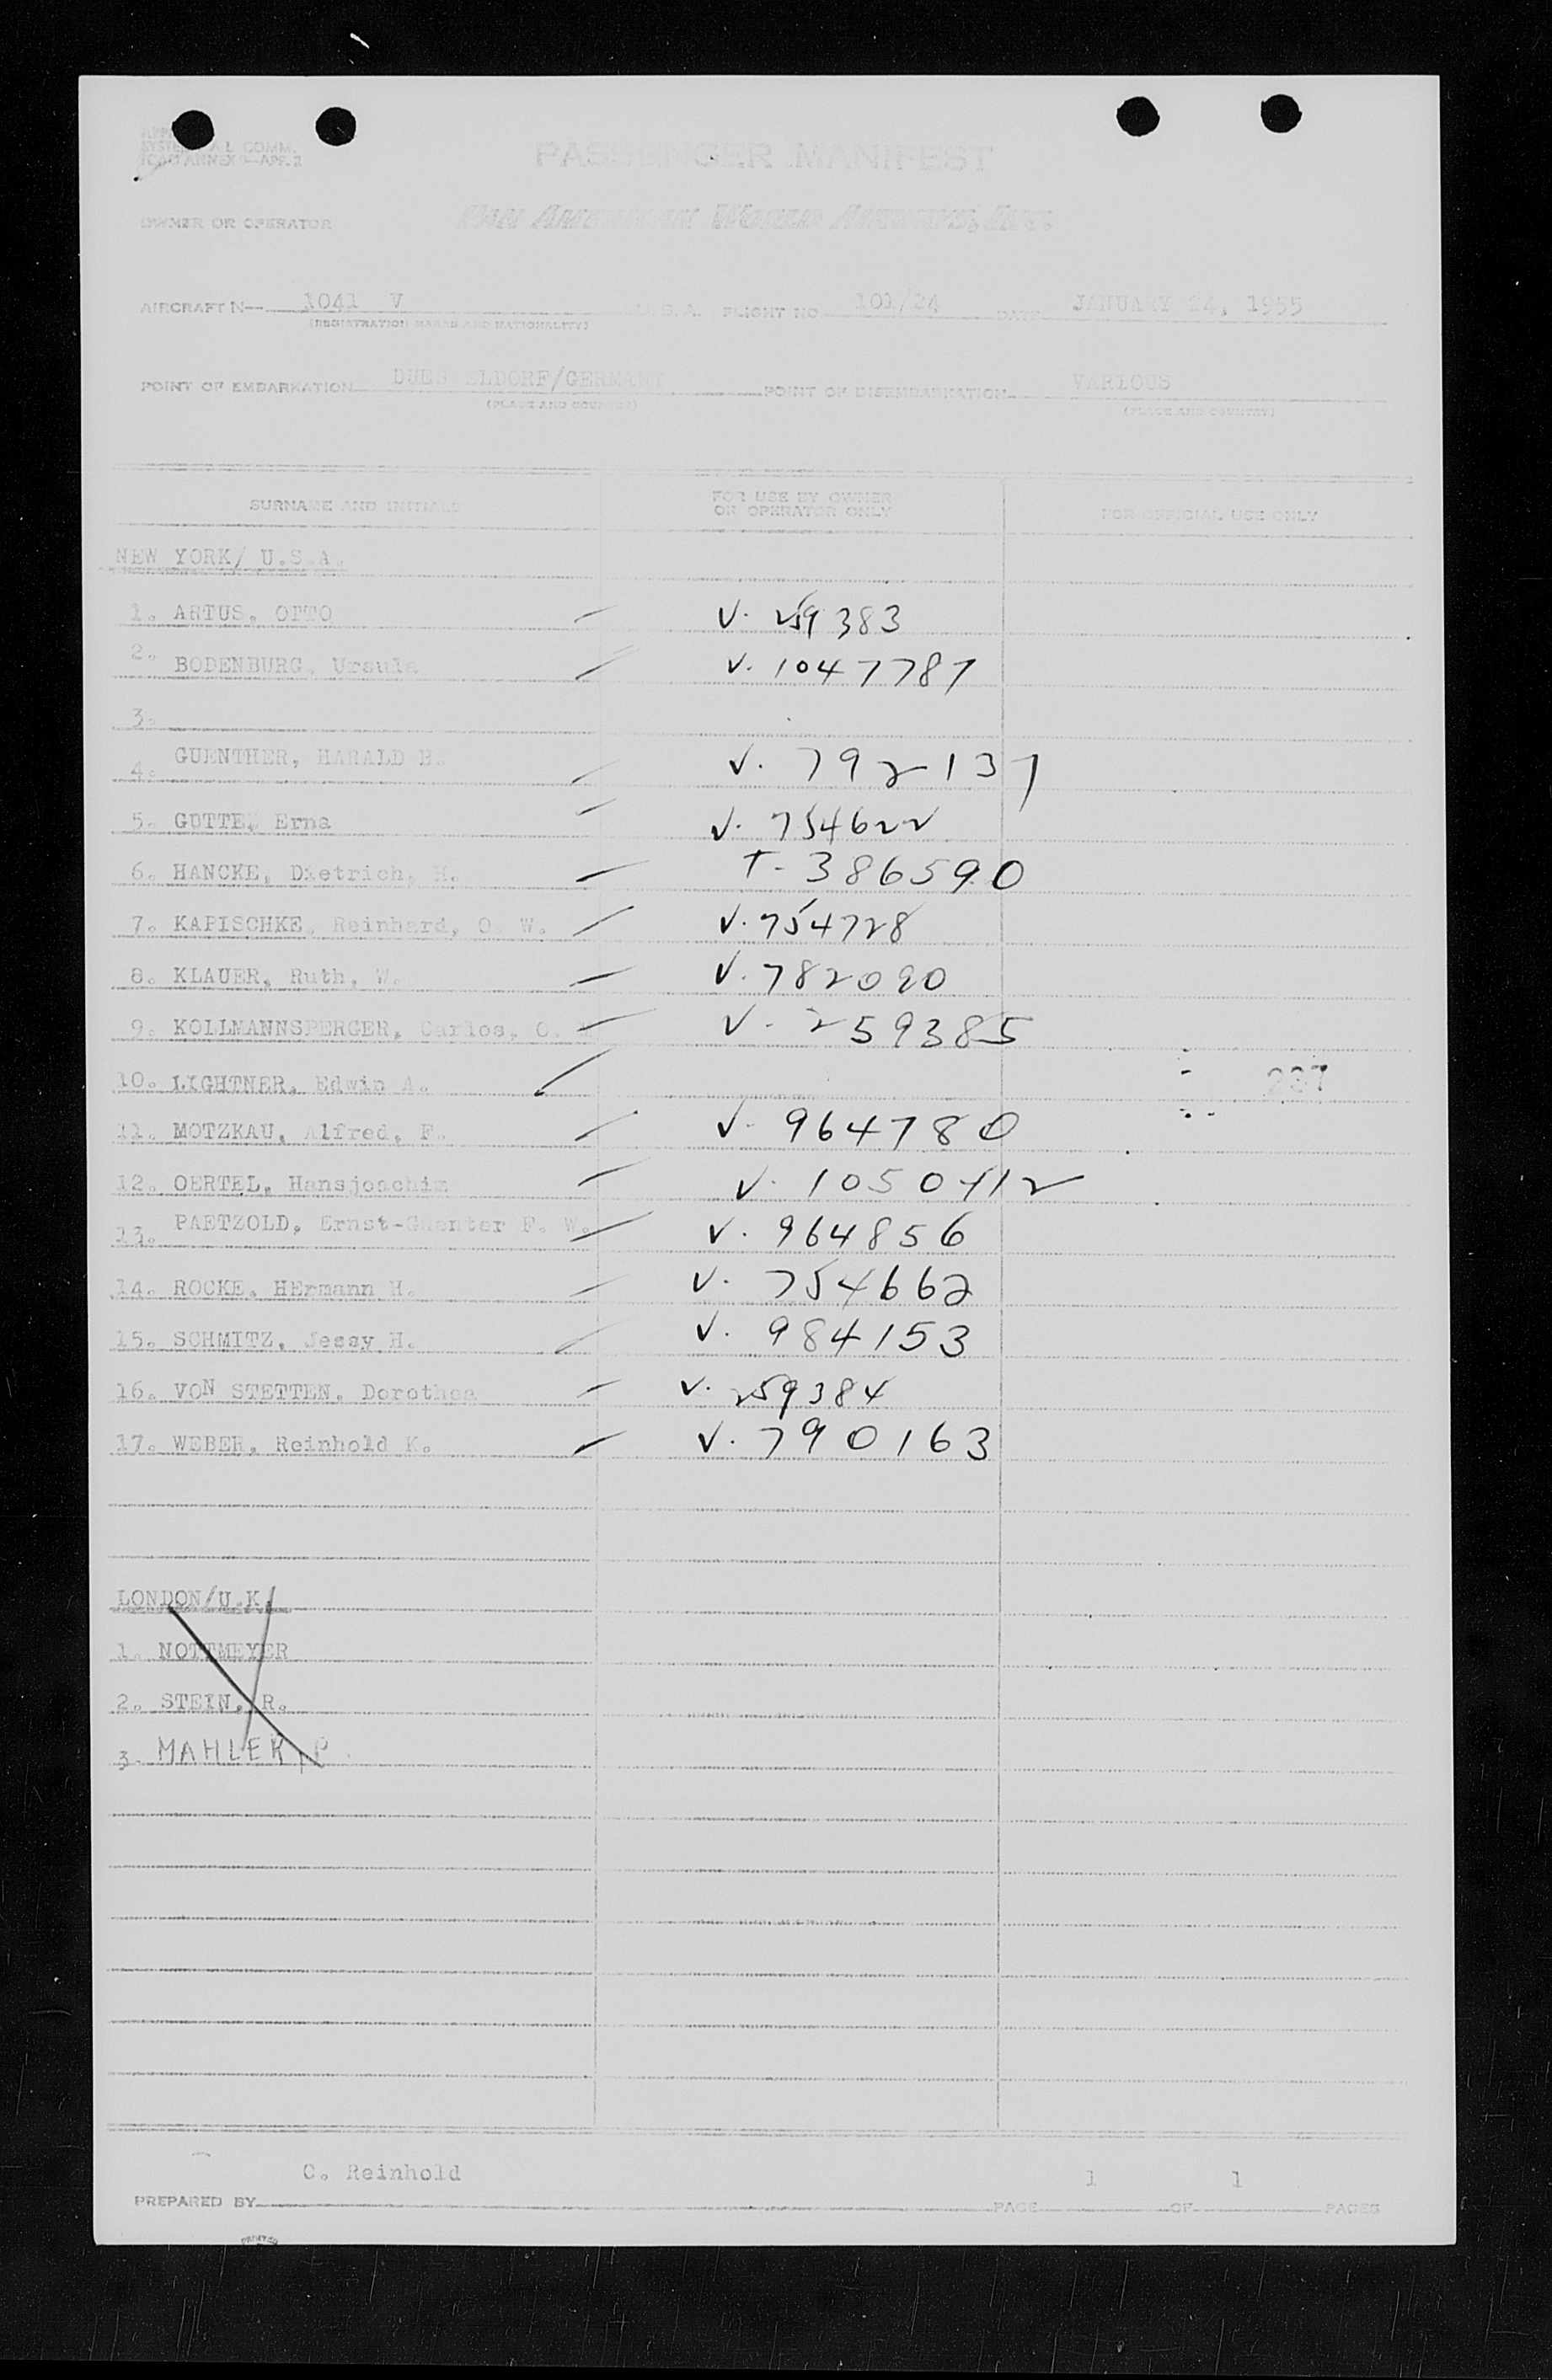 SYSTE AL COMM.
ICAO ANNEX —APP. 2
PASSENGER MANIFEST
OWNER OR OPERATOR PAN AMERICAN WORLD AIRWAYS, INC.
AIRCRAFT N— 1041 V U.S.A. FLIGHT NO 101/24 DATE JANUARY 24, 1955
(REGISTRATION MARKS AND NATIONALITY)
POINT OF EMBARKATION DUES ELDORF/GERMANY POINT OF DISEMBARKATION VARIOUS
(PLACE AND COUNTRY) (PLACE AND COUNTRY)
SURNAME AND INITIALS FOR USE BY OWNER OR OPERATOR ONLY FOR OFFICIAL USE ONLY
NEW YORK/ U.S.A.
1. ARTUS, OTTO V. 259383
2. BODENBURG, Ursula V. 1047787
3.
4. GUENTHER, HARALD H. V. 792137
5. GUTTE, Erna V. 754622
6. HANCKE, Dietrich, H. T- 386590
7. KAPISCHKE, Reinhard, O. W. V. 754728
8. KLAUER, Ruth, W. V. 782090
9. KOLLMANNSPERGER, Carlos, O. V- 259385
10. LIGHTNER, Edwin A. 237
11. MOTZKAU, Alfred, F. V- 964780
12. OERTEL, Hansjoachim V. 1050412
13. PAETZOLD, Ernst-Guenter F. W. V. 964856
14. ROCKE, HErmann H. V. 754662
15. SCHMITZ, Jessy H. V. 984153
16. VON STETTEN, Dorothea V. 259384
17. WEBER, Reinhold K. V. 790163
LONDON/U.K.
1. NOTTMEYER
2. STEIN, R.
3. MAHLER, P.
C. Reinhold 1 1
PREPARED BY PAGE OF PAGES
PRINTED